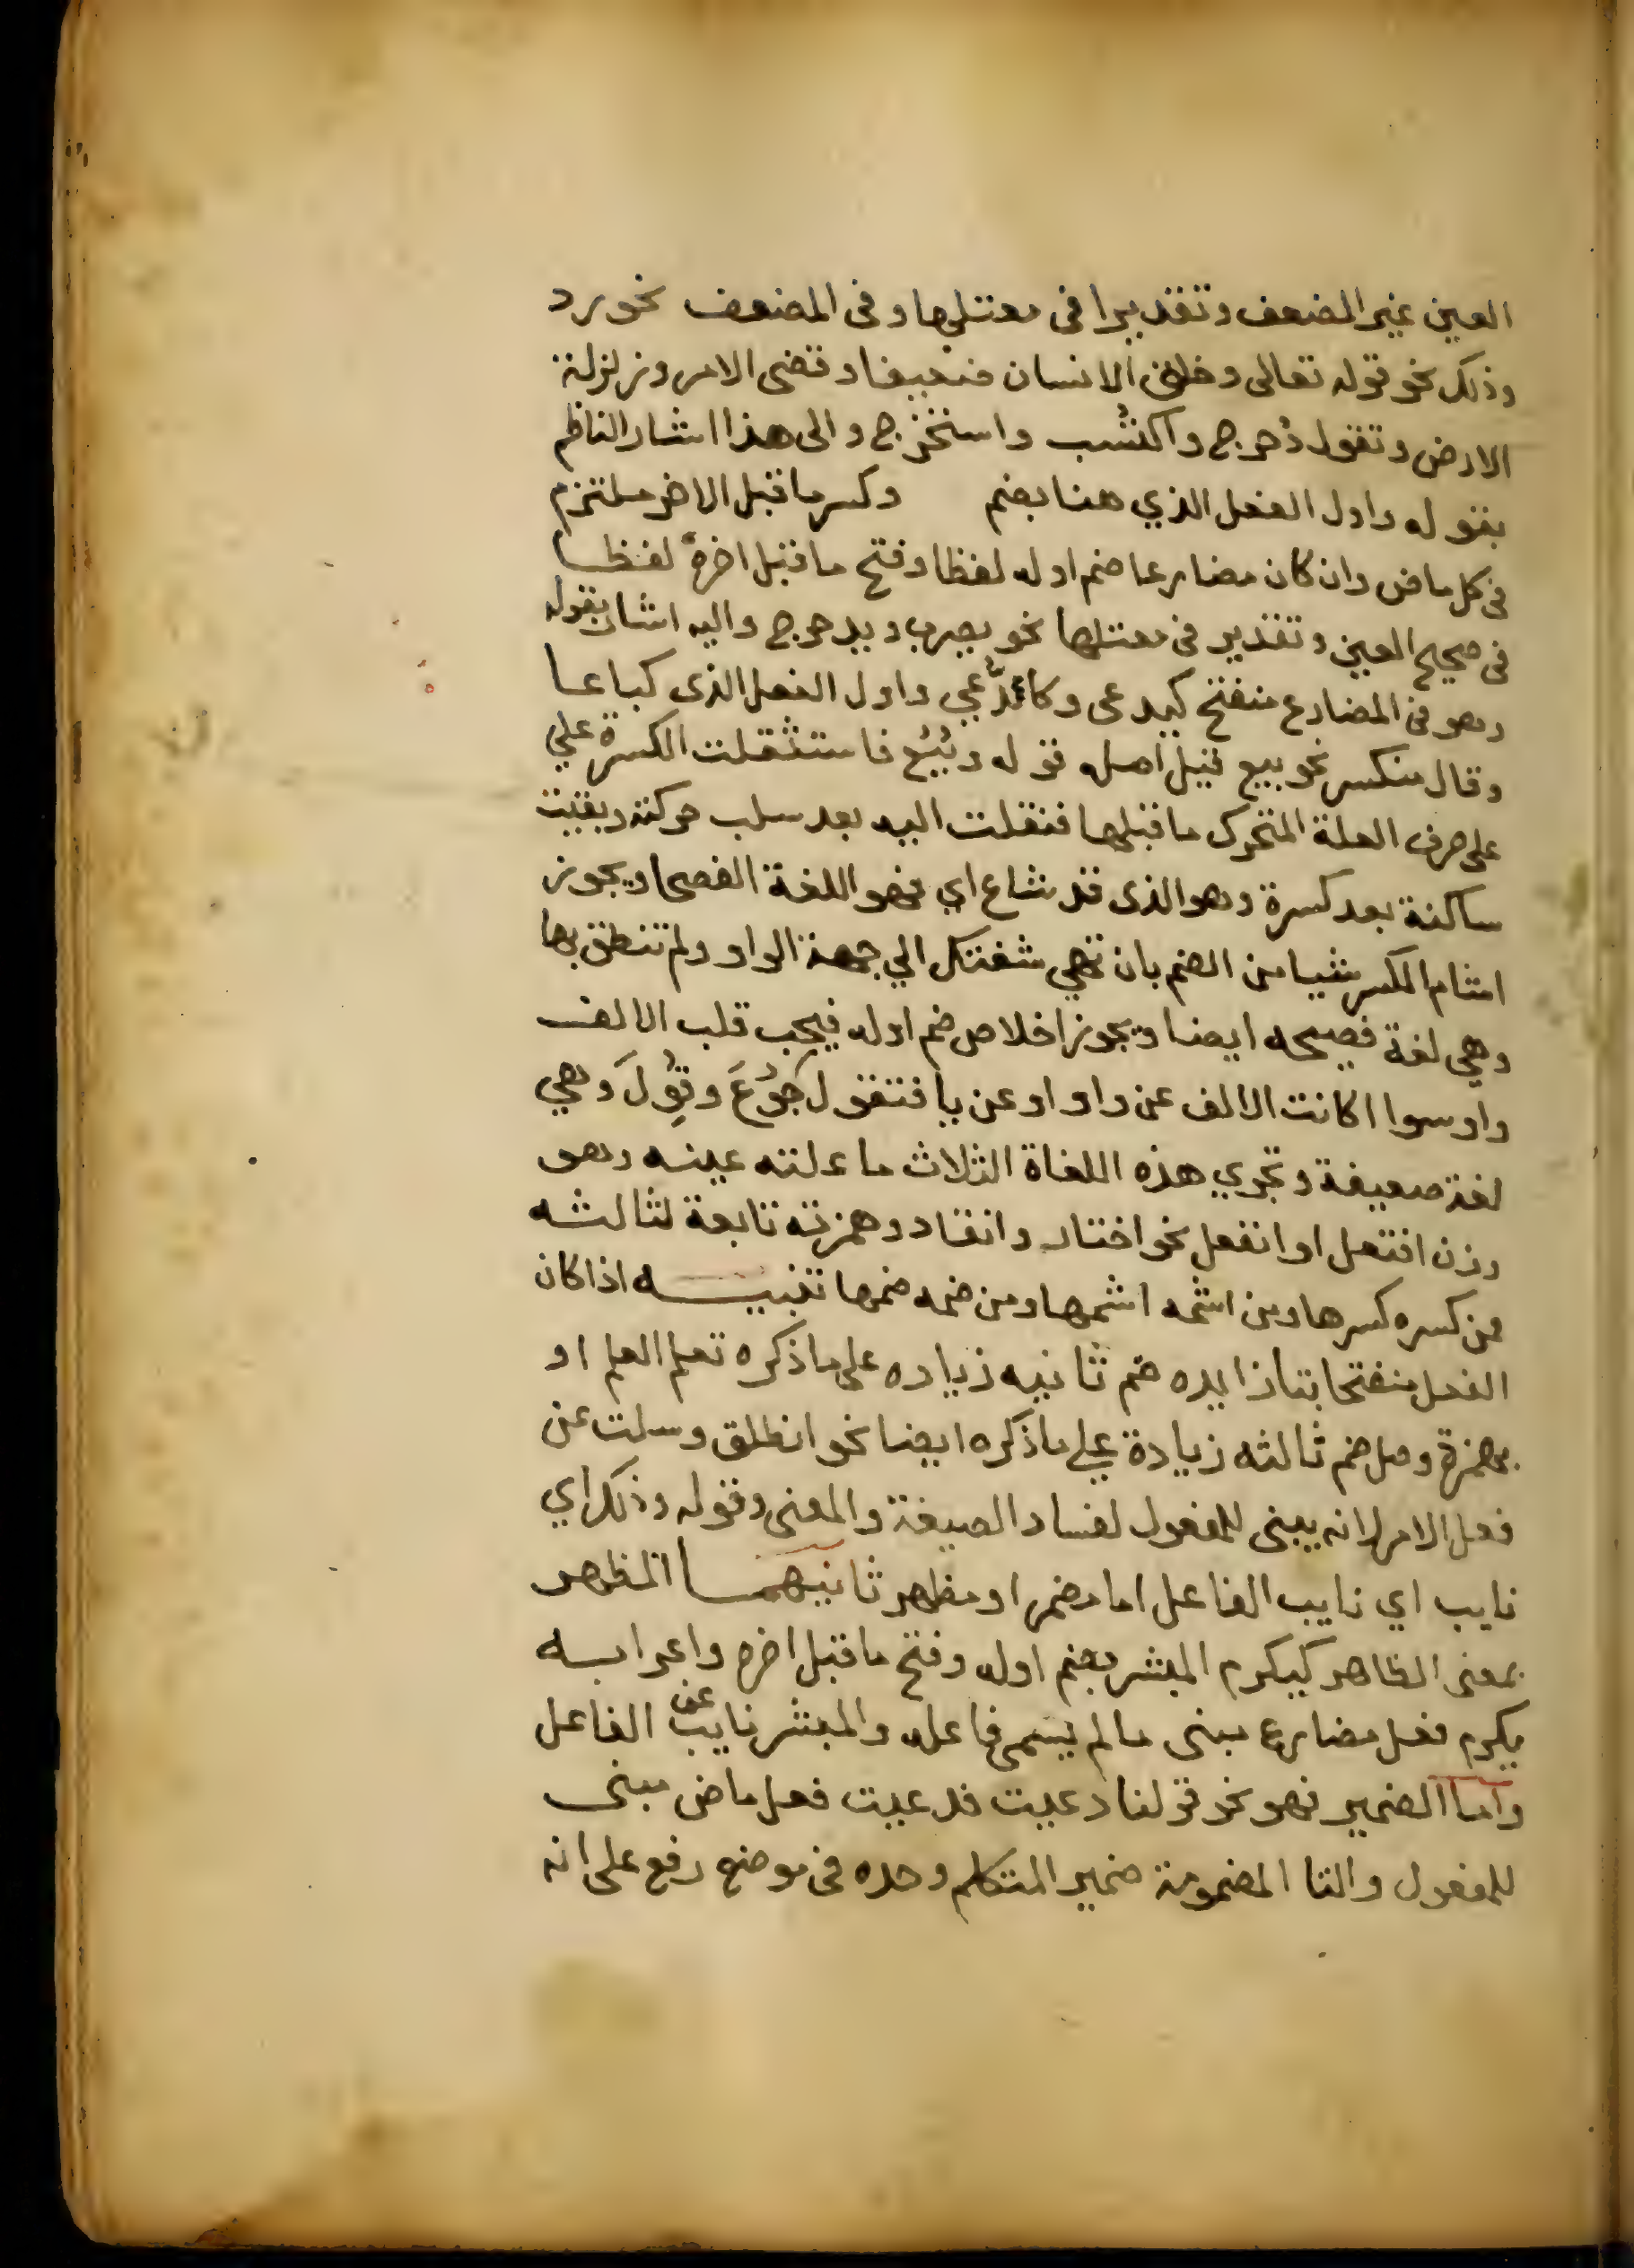 العين غير المضعف وتقديرا في معتلها وفى المضعف نحو رد
وذلك نحو قوله تعالى وخلق الانسان ضعيفا وقضى الامر وزلزلة
الارض وتقول دُحرج واكتُسب واستُخرج والى هذا اشار الناظم
بقوله واول الفعل الذي هنا يضم وكسر ما قبل الاخر ملتزم
فى كل ماض وان كان مضارعا ضم اوله لفظا وفتح ما قبل اخره لفظا
فى صحيح العين وتقدير فى معتلها نحو يضرب ويدحرج واليه اشار بقوله
وهو فى المضارع منفتح كيدعى وكادّعي واول الفعل الذى كباعا
وقال منكسر نحو بيع قيل اصله قوله وبُيُع فاستثقلت الكسرة علي
على حرف العلة المتحرك ما قبلها فنقلت اليه بعد سلب حركته وبقيت
ساكنة بعد كسرة وهو الذى قد شاع اي فهو اللغة الفصحا ويجوز
اشمام الكسر شيا من الضم بان تهي شفتك الي جهة الواو ولم تنطق بها
وهي لغة فصيحه ايضا ويجوز اخلاص ضم اوله فيجب قلب الالف
واو سوا اكانت الالف عن واو او عن يا فتقول جُوْعَ وقُوِلَ وهي
لغة ضعيفة وتجري هذه اللغاة الثلاث ما علته عينه وهو
وزن افتعل او انفعل نحو اختار وانقاد وهمزته تابعة لثالثه
من كسره كسرها ومن اشمه اشمها ومن ضمه ضمها تنبيه اذا كان
الفعل منفتحا بتا زايده ضم ثانيه زياده على ما ذكره تعلم العلم او
بهمزة وصل ضم ثالثه زيادة علي ما ذكره ايضا نحو انطلق وسلت عن
فعل الامر لانه يبنى للمفعول لفساد الصيغة والمعنى وقوله وذلك اي
نايب اي نايب الفاعل اما مضمر او مظهر ثانيهما المظهر
بمعنى الظاهر كيكرم المبشر بضم اوله وفتح ما قبل اخره واعرابه
يكرم فعل مضارع مبنى ما لم يسمى فاعله والمبشر نايب عن الفاعل
واما الضمير فهو نحو قولنا دعيت فدعيت فعل ماض مبنى
للمفعول والتا المضمومة ضمير المتكلم وحده فى موضع رفع على انه